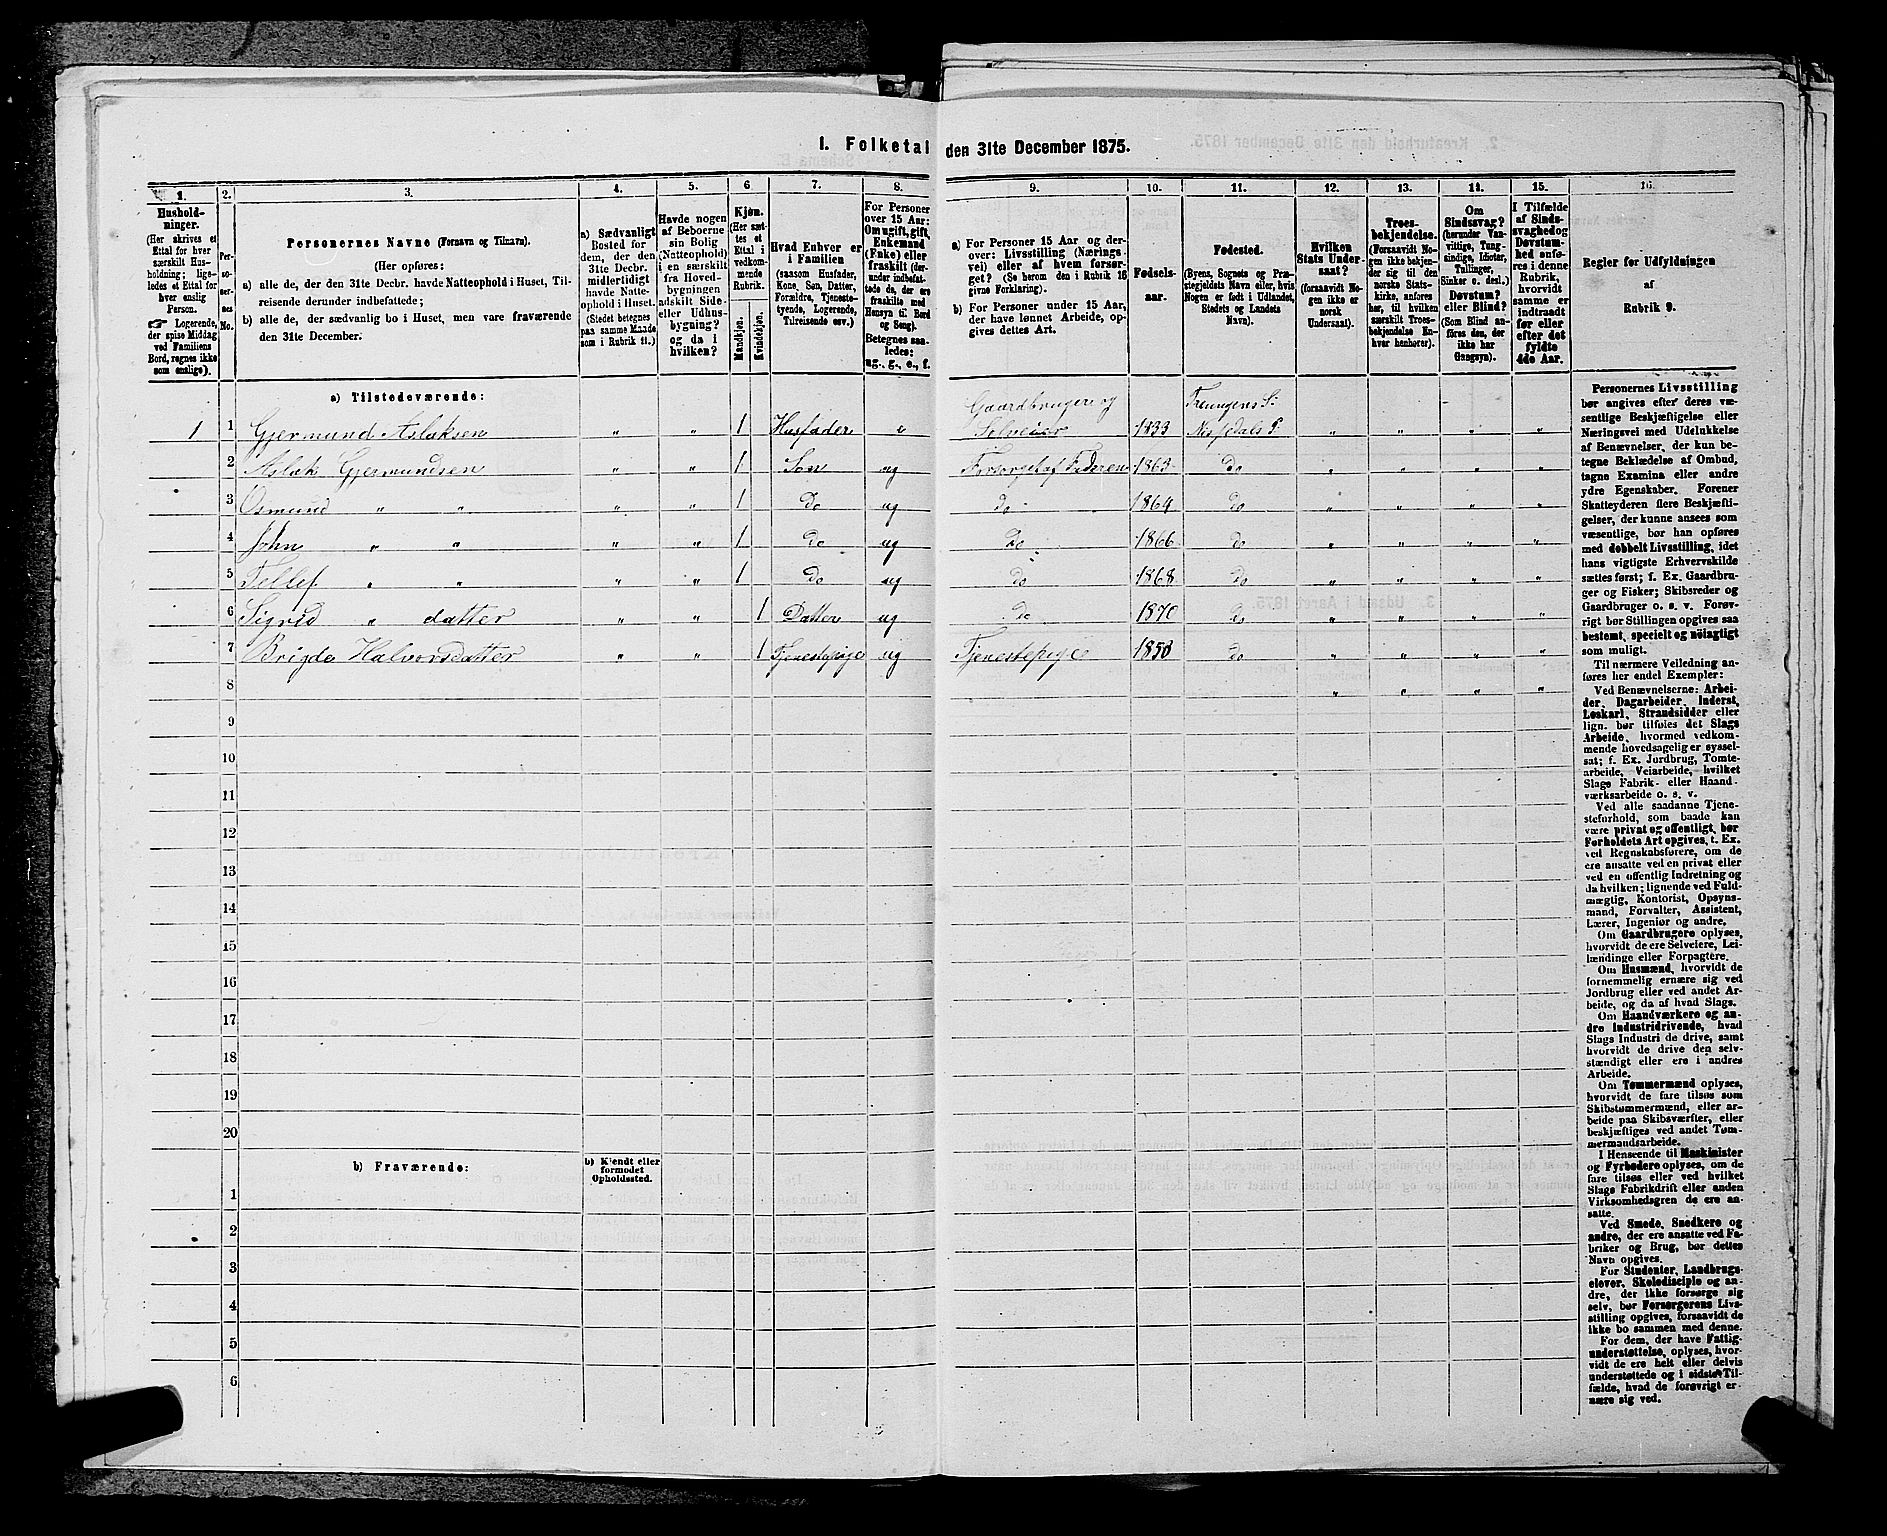 I. Folketal den 31te December 1875.
1. 2. 3. 4. 5. 6. 7. 8. 9. 10. 11. 12. 13. 14. 15. 16.
Hushold-
ninger.
(Her skrives et
Ettal for hver
særskilt Hus-
holdning; lige-
ledes et Ettal for
hver enslig
Person.
☛ Logerende,
der spise Middag
ved Familiens
Bord, regnes ikke
som enslige).
Per-
so-
ner-
nes
No.
Personernes Navne (Fornavn og Tilnavn).
(Her opføres:
a) alle de, der den 31te Decbr. havde Natteophold i Huset, Til-
reisende derunder indbefattede;
b) alle de, der sædvanlig bo i Huset, men vare fraværende
den 31te December.
a) Sædvanligt
Bosted for
dem, der den
31te Decbr.
midlertidigt
havde Natte-
ophold i Huset.
(Stedet betegnes
paa samme Maade
som i Rubrik 11.)
Havde nogen
af Beboerne
sin Bolig
(Natteophold)
i en særskilt
fra Hoved-
bygningen
adskilt Side-
eller Udhus-
bygning?
og da i
hvilken?
Kjøn.
(Her sæt-
tes et
Ettal i
vedkom-
mende
Rubrik.
Mandkjøn.
Kvindekjøn.
Hvad Enhver er
i Familien
(saasom Husfader,
Kone, Søn, Datter,
Forældre, Tjeneste-
tyende, Logerende,
Tilreisende osv.)
For Personer
over 15 Aar:
Om ugift, gift,
Enkemand
(Enke) eller
fraskilt (der-
under indbefat-
tede de, der ere
fraskilte med
Hensyn til Bord
og Seng).
Betegnes saa-
ledes:
ug., g., e., f.
a) For Personer 15 Aar og der-
over: Livsstilling (Nærings-
vei) eller af hvem forsør-
get? (Se herom den i Rubrik 16
givne Forklaring).
b) For Personer under 15 Aar,
der have lønnet Arbeide, op-
gives dettes Art.
Fødsels-
aar.
Fødested.
(Byens, Sognets og Præ-
stegjeldets Navn eller, hvis
Nogen er født i Udlandet,
Stedets og Landets
Navn).
Hvilken
Stats Under-
saat?
(forsaavidt No-
gen ikke er
norsk
Undersaat).
Troes-
bekjendelse.
(Forsaavidt No-
gen ikke bekjen-
der sig til den
norske Stats-
kirke, anføres
her, til hvilken
særskilt Troes-
bekjendelse En-
hver henhører).
Om
Sindssvag?
(herunder Van-
vittige, Tung-
sindige, Idioter,
Tullinger,
Sinker o. desl.)
Døvstum?
eller Blind?
(Som Blind an-
føres den, der
ikke har
Gangsyn).
I Tilfælde
af Sinds-
svaghed og
Døvstum-
hed anfø-
res i denne
Rubrik,
hvorvidt
samme er
indtraadt
før eller
efter det
fyldte
4de Aar.
Regler for Udfyldningen
af
Rubrik 9.
a) Tilstedeværende:
1 1 Gjermund Aslaksen " " 1 Husfader " Gaardbruger og Selveier 1833 Treungens S: Nissedals P. " " " "
2 Aslak Gjermundsen " " 1 Søn ug Forsørget af Faderen 1863 do " " " "
3 Osmund " " " " 1 do ug do 1864 do " " " "
4 John " " " " 1 do ug do 1866 do " " " "
5 Tellef " " " " 1 do ug do 1868 do " " " "
6 Sigrid " datter " " 1 Datter ug do 1870 do " " " "
7 Brigde Halvorsdatter " " 1 Tjenestepige ug Tjenestepige 1850 do " " " "
8 " " " "
9
10
11
12
13
14
15
16
17
18
19
20
b) Fraværende:
b) Kjendt eller
formodet
Opholdssted.
1
2
3
4
5
6
Personernes Livsstilling
bør angives efter deres væ-
sentlige Beskjæftigelse eller
Næringsvei med Udelukkelse
af Benævnelser, der kun be-
tegne Beklædelse af Ombud,
tagne Examina eller andre
ydre Egenskaber. Forener
Skatteyderen flere Beskjæfti-
gelser, der kunne ansees som
væsentlige, bør han opføres
med dobbelt Livsstilling, idet
hans vigtigste Erhvervskilde
sættes først; f. Ex. Gaardbru-
ger og Fisker; Skibsreder og
Gaardbruger o. s. v. Forøv-
rigt bør Stillingen opgives saa
bestemt, specielt og nøiagtigt
som muligt.
Til nærmere Veiledning an-
føres her endel Exempler:
Ved Benævnelserne: Arbei-
der, Dagarbeider, Inderst,
Løskarl, Strandsidder eller
lign. bør tilføies det Slags
Arbeide, hvormed vedkom-
mende hovedsagelig er syssel-
sat; f. Ex. Jordbrug, Tomte-
arbeide, Veiarbeide, hvilket
Slags Fabrik- eller Haand-
værksarbeide o. s. v.
Ved alle saadanne Tjene-
steforhold, som baade kan
være privat og offentligt, bør
Forholdets Art opgives, t. Ex.
ved Regnskabsførere, om de
ere ansatte ved en privat eller
ved en offentlig Indretning og
da hvilken; lignende ved Fuld-
mægtig, Kontorist, Opsyns-
mand, Forvalter, Assistent,
Lærer, Ingeniør og andre.
Om Gaardbrugere oplyses,
hvorvidt de ere Selveiere, Lei-
lændinge eller Forpagtere.
Om Husmænd, hvorvidt de
fornemmelig ernære sig ved
Jordbrug eller ved andet Ar-
beide, og da af hvad Slags.
Om Haandværkere og an-
dre industridrivende, hvad
Slags Industri de drive, samt
hvorvidt de drive den selv-
stændigt eller ere i andres
Arbeide.
Om Tømmermænd oplyses,
hvorvidt de fare tilsøs som
Skibstømmermænd, eller ar-
beide paa Skibsværfter, eller
beskjæftiges ved andet Tøm-
mermandsarbeide.
I Henseende til Maskinister
og Fyrbødere oplyses, om de
fare tilsøs eller ved hvilket
Slags Fabrikdrift eller anden
Virksomhedsgren de ere an-
satte.
Ved Smede, Snedkere og
andre, der ere ansatte ved Fa-
briker og Brug, bør dettes
Navn opgives.
For Studenter, Landbrugs-
elever, Skoledisciple og an-
dre, der ikke forsørge sig
selv, bør Forsørgerens Livs-
stilling opgives, forsaavidt de
ikke bo sammen med denne.
For dem, der have Fattig-
understøttelse, oplyses, hvor-
vidt de ere helt eller delvis
understøttede og i sidste Til-
fælde, hvad de forøvrigt er-
nære sig ved.